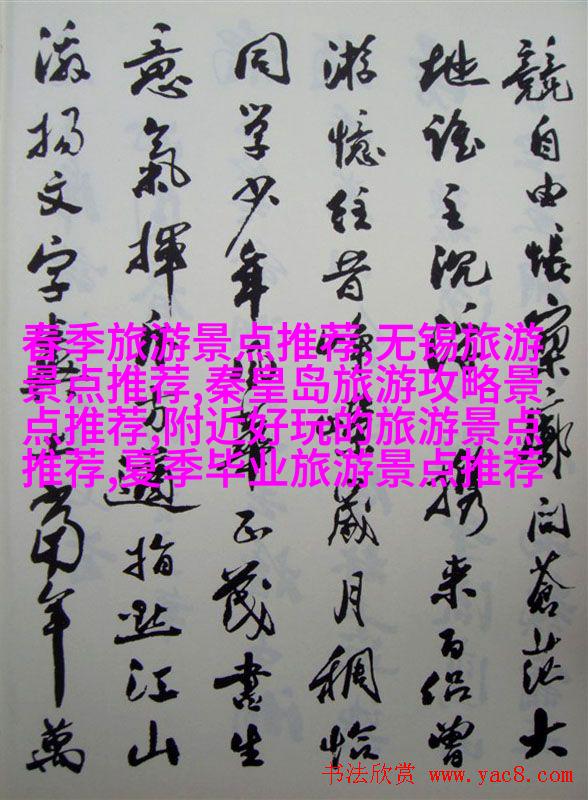 競自由悵寥廓问蒼茫大
地谁主沉浮携来百侣曾
游憶往昔峥嵘歲月稠恰
同学少年風華正茂書生
意氣揮斥方遒指点江山
激揚文字糞土當年萬
春季旅游景点推荐,无锡旅游
景点推荐,秦皇岛旅游攻略景
点推荐,附近好玩的旅游景点
推荐,夏季毕业旅游景点推荐
书法欣赏 www.yac8.com